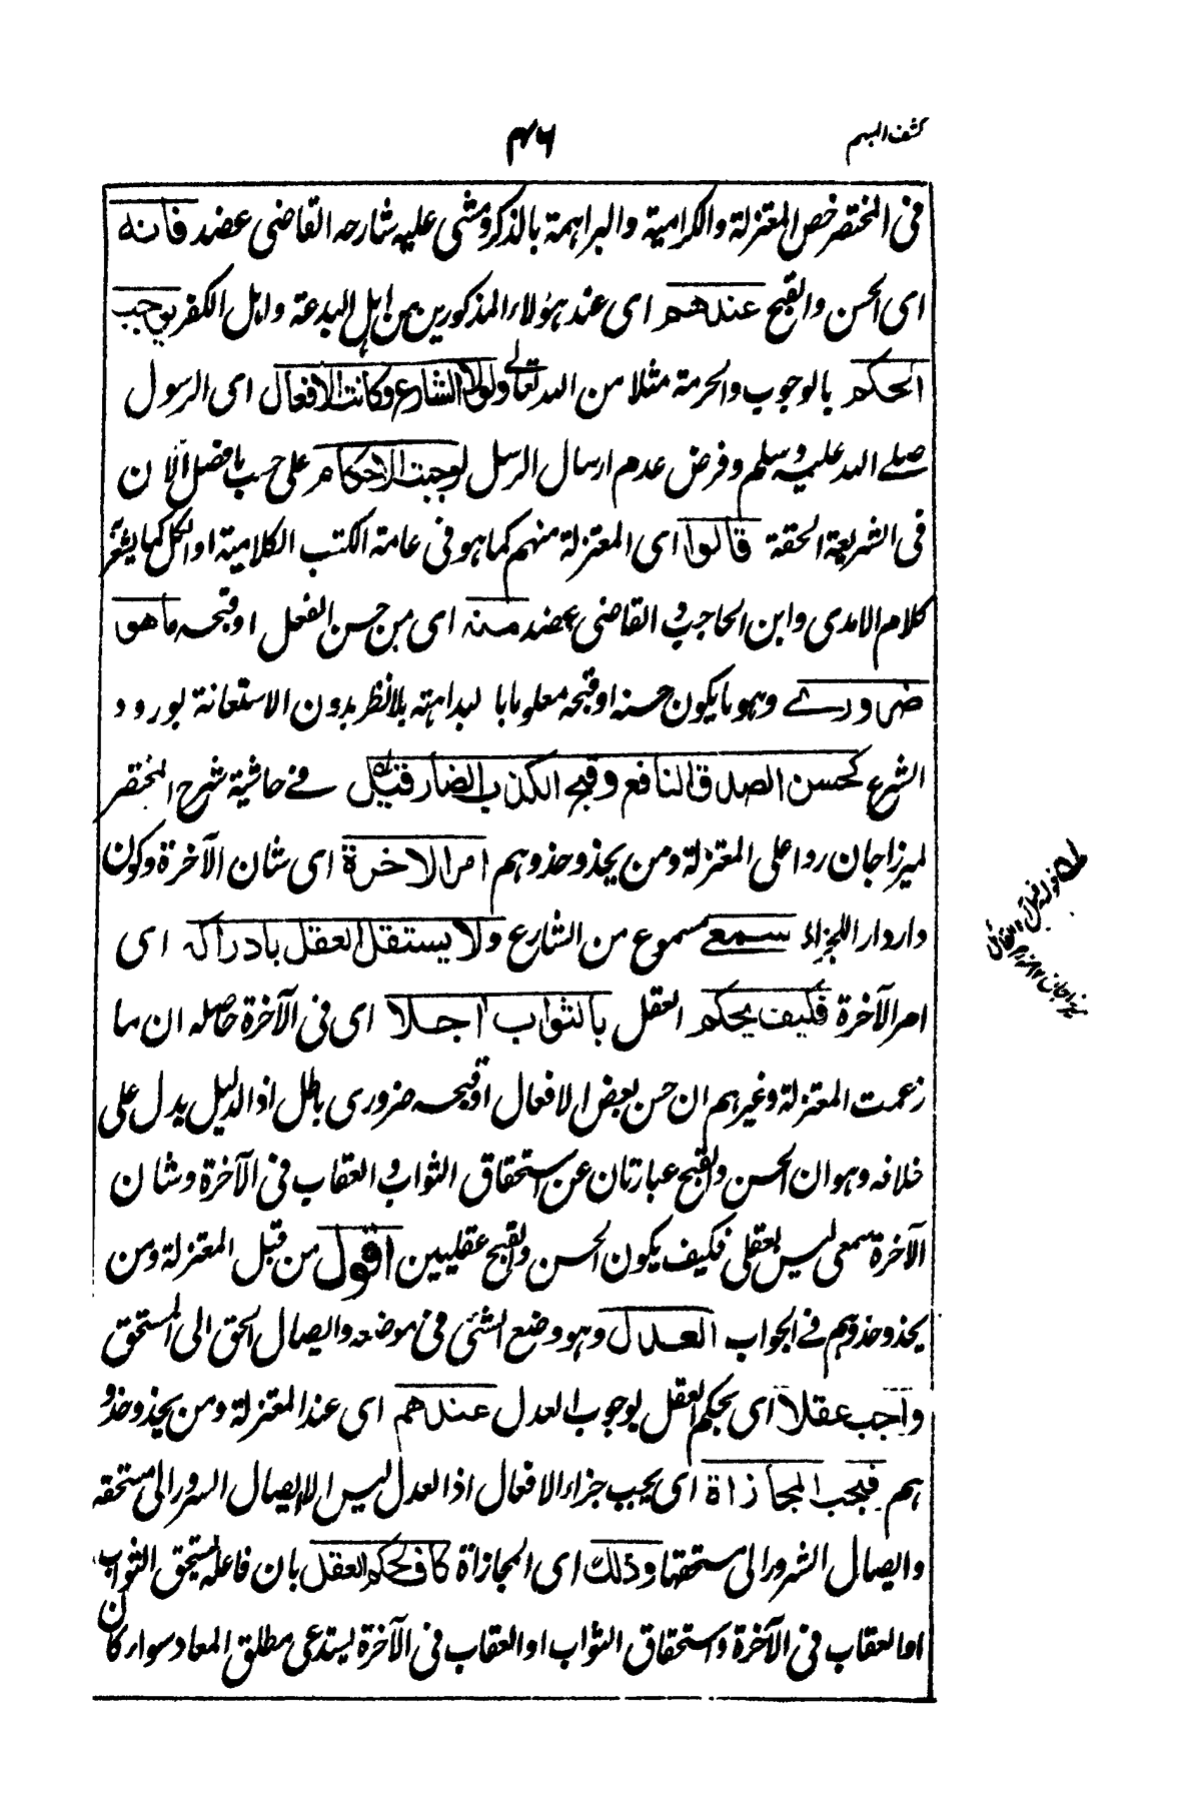 كشف المبهم
٤٦
فى المختصر خص المعتزلة والكرامية والبراهمة بالذكر ومشى عليه شارحه القاضى عضد فانه
اى الحسن والقبح عندهم اى عند هؤلاء المذكورين من اهل البدعة واهل الكفر يوجب
الحكم بالوجوب والحرمة مثلا من الله تعالى ولولا الشارع وكانت الافعال اى الرسول
صلے الله عليه وسلم وفرض عدم ارسال الرسل لوجبت الاحكام على حسب ما فصل الآن
فى الشريعة الحقة قالوا اى المعتزلة منهم كما هو فى عامة الكتب الكلامية او الكل كما يشعر
كلام الامدى وابن الحاجب والقاضى عضد منه اى من حسن الفعل او قبحه ما هو
ضرورے وهو ما يكون حسنه او قبحه معلوما بالبداهة بلا نظر بدون الاستعانة بورود
الشرع كحسن الصدق النافع وقبح الكذب الضار قيل فے حاشية شرح المختصر
لميرزاجان ردا على المعتزلة ومن يحذو حذوهم امر الاخرة اى شان الآخرة وكون
دار دار الجزاء سمعے مسموع من الشارع ولا يستقل العقل بادراكه اى
امر الآخرة فكيف يحكم العقل بالثواب اجلا اى فى الآخرة حاصله ان ما
زعمت المعتزلة وغيرهم ان حسن بعض الافعال او قبحه ضرورى باطل اذ الدليل يدل على
خلافه وهو ان الحسن والقبح عبارتان عن استحقاق الثواب والعقاب فى الآخرة وشان
الآخرة سمعى ليس بعقلى فكيف يكون الحسن والقبح عقليين اقول من قبل المعتزلة ومن
يحذو حذوهم فے الجواب العدل وهو وضع الشئى فى موضعه وايصال الحق الى المستحق
واجب عقلا اى يحكم العقل بوجوب العدل عندهم اى عند المعتزلة ومن يحذو حذو
هم فيجب المجازاة اى يجب جزاء الافعال اذ العدل ليس الا ايصال السرور الى مستحقه
وايصال الشرور الى مستحقها وذلك اى المجازاة كاف لحكم العقل بان فاعله يستحق الثواب
اما العقاب فى الآخرة واستحقاق الثواب او العقاب فى الآخرة يستدعى مطلق المعاد سواء كان